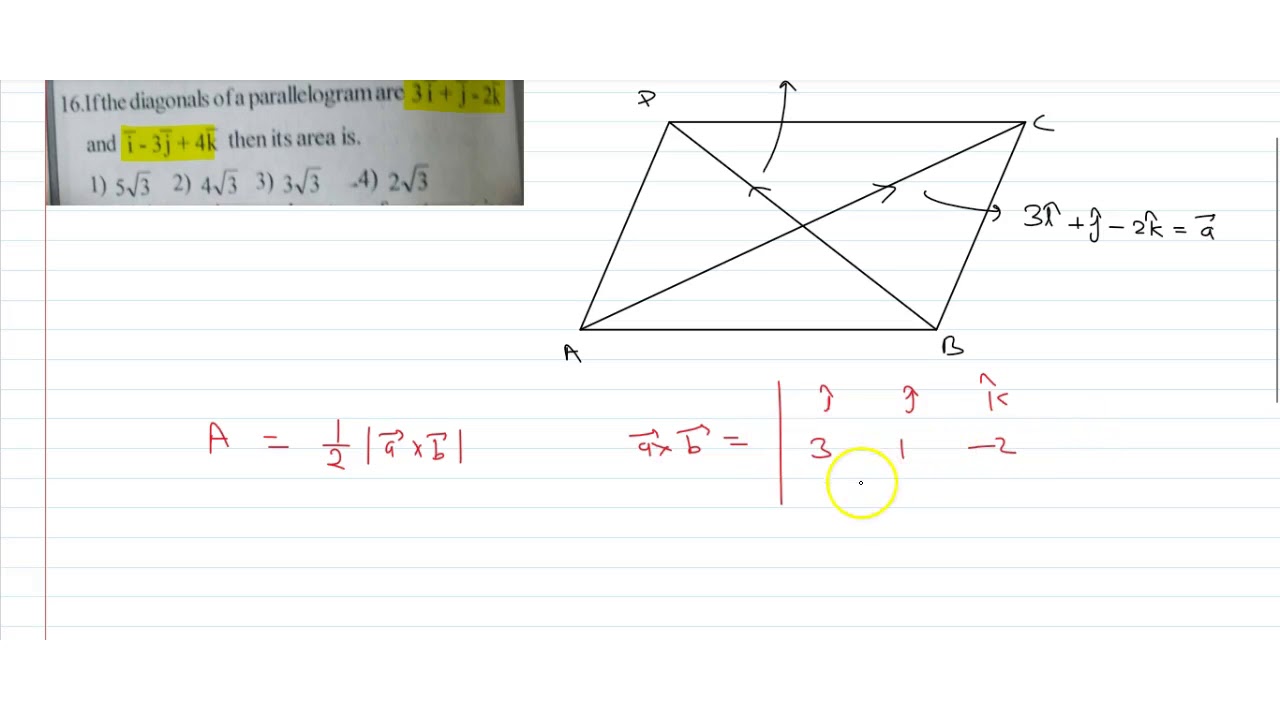 16.If the diagonals of a parallelogram are 3i̅ + j̅ - 2k̅
and i̅ - 3j̅ + 4k̅ then its area is.
1) 5√3 2) 4√3 3) 3√3 4) 2√3
D
C
3î + ĵ - 2k̂ = a⃗
A
B
A = 1/2 |a⃗ × b⃗|
a⃗ × b⃗ = | î ĵ k̂
3 1 -2